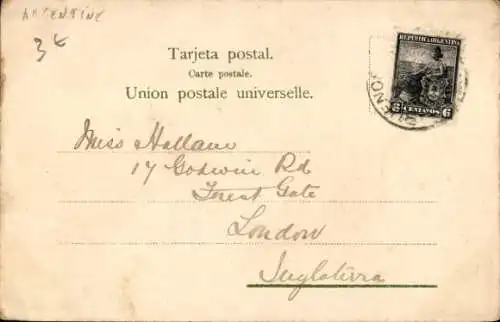 ARGENTINE
3€
Tarjeta postal.
Carte postale.
Union postale universelle.
REPUBLICA ARGENTINA
6 CENTAVOS 6
BUENOS
Miss Hallam
17 Godwin Rd
Forest Gate
London
Inglatirra